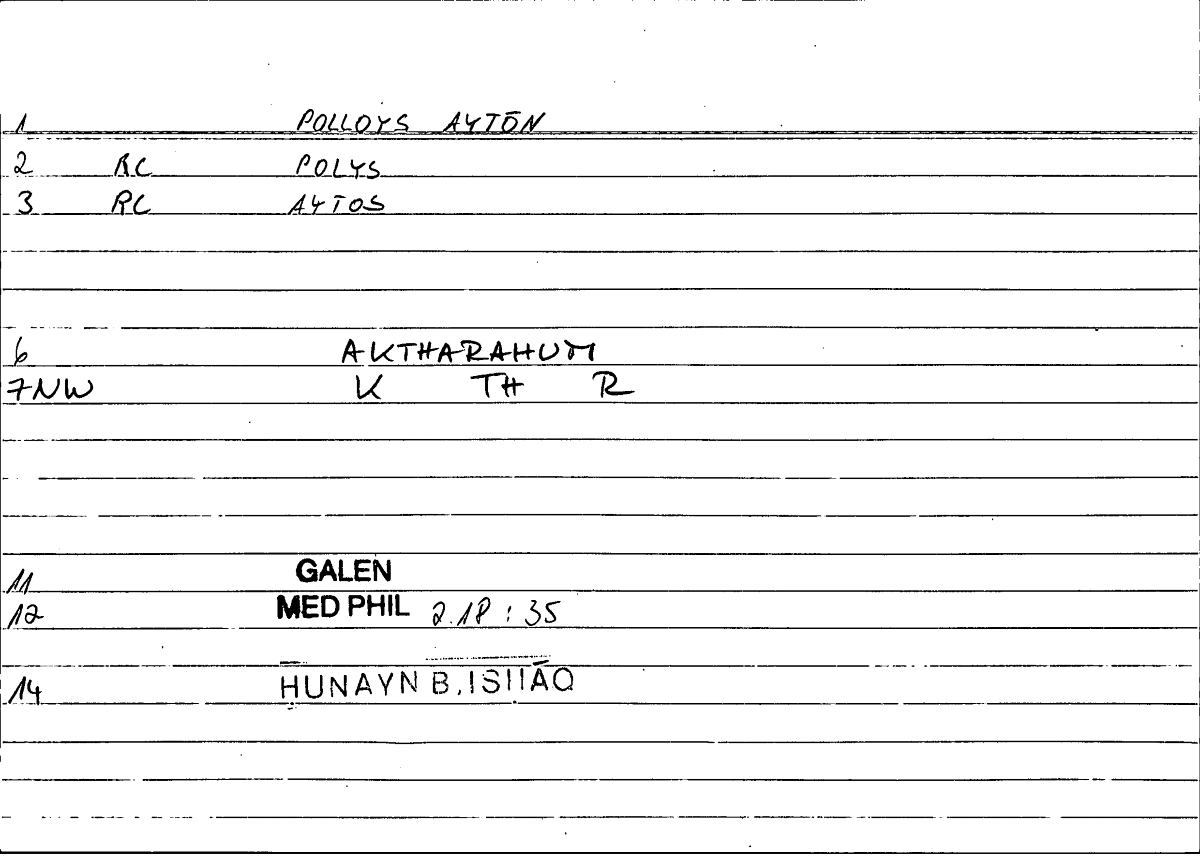 1 POLLOYS AYTŌN
2 RC POLYS
3 RC AYTOS
6 AKTHARAHUM
7NW K TH R
11 GALEN
12 MED PHIL 2.18 : 35
14 HUNAYN B. ISḤĀQ